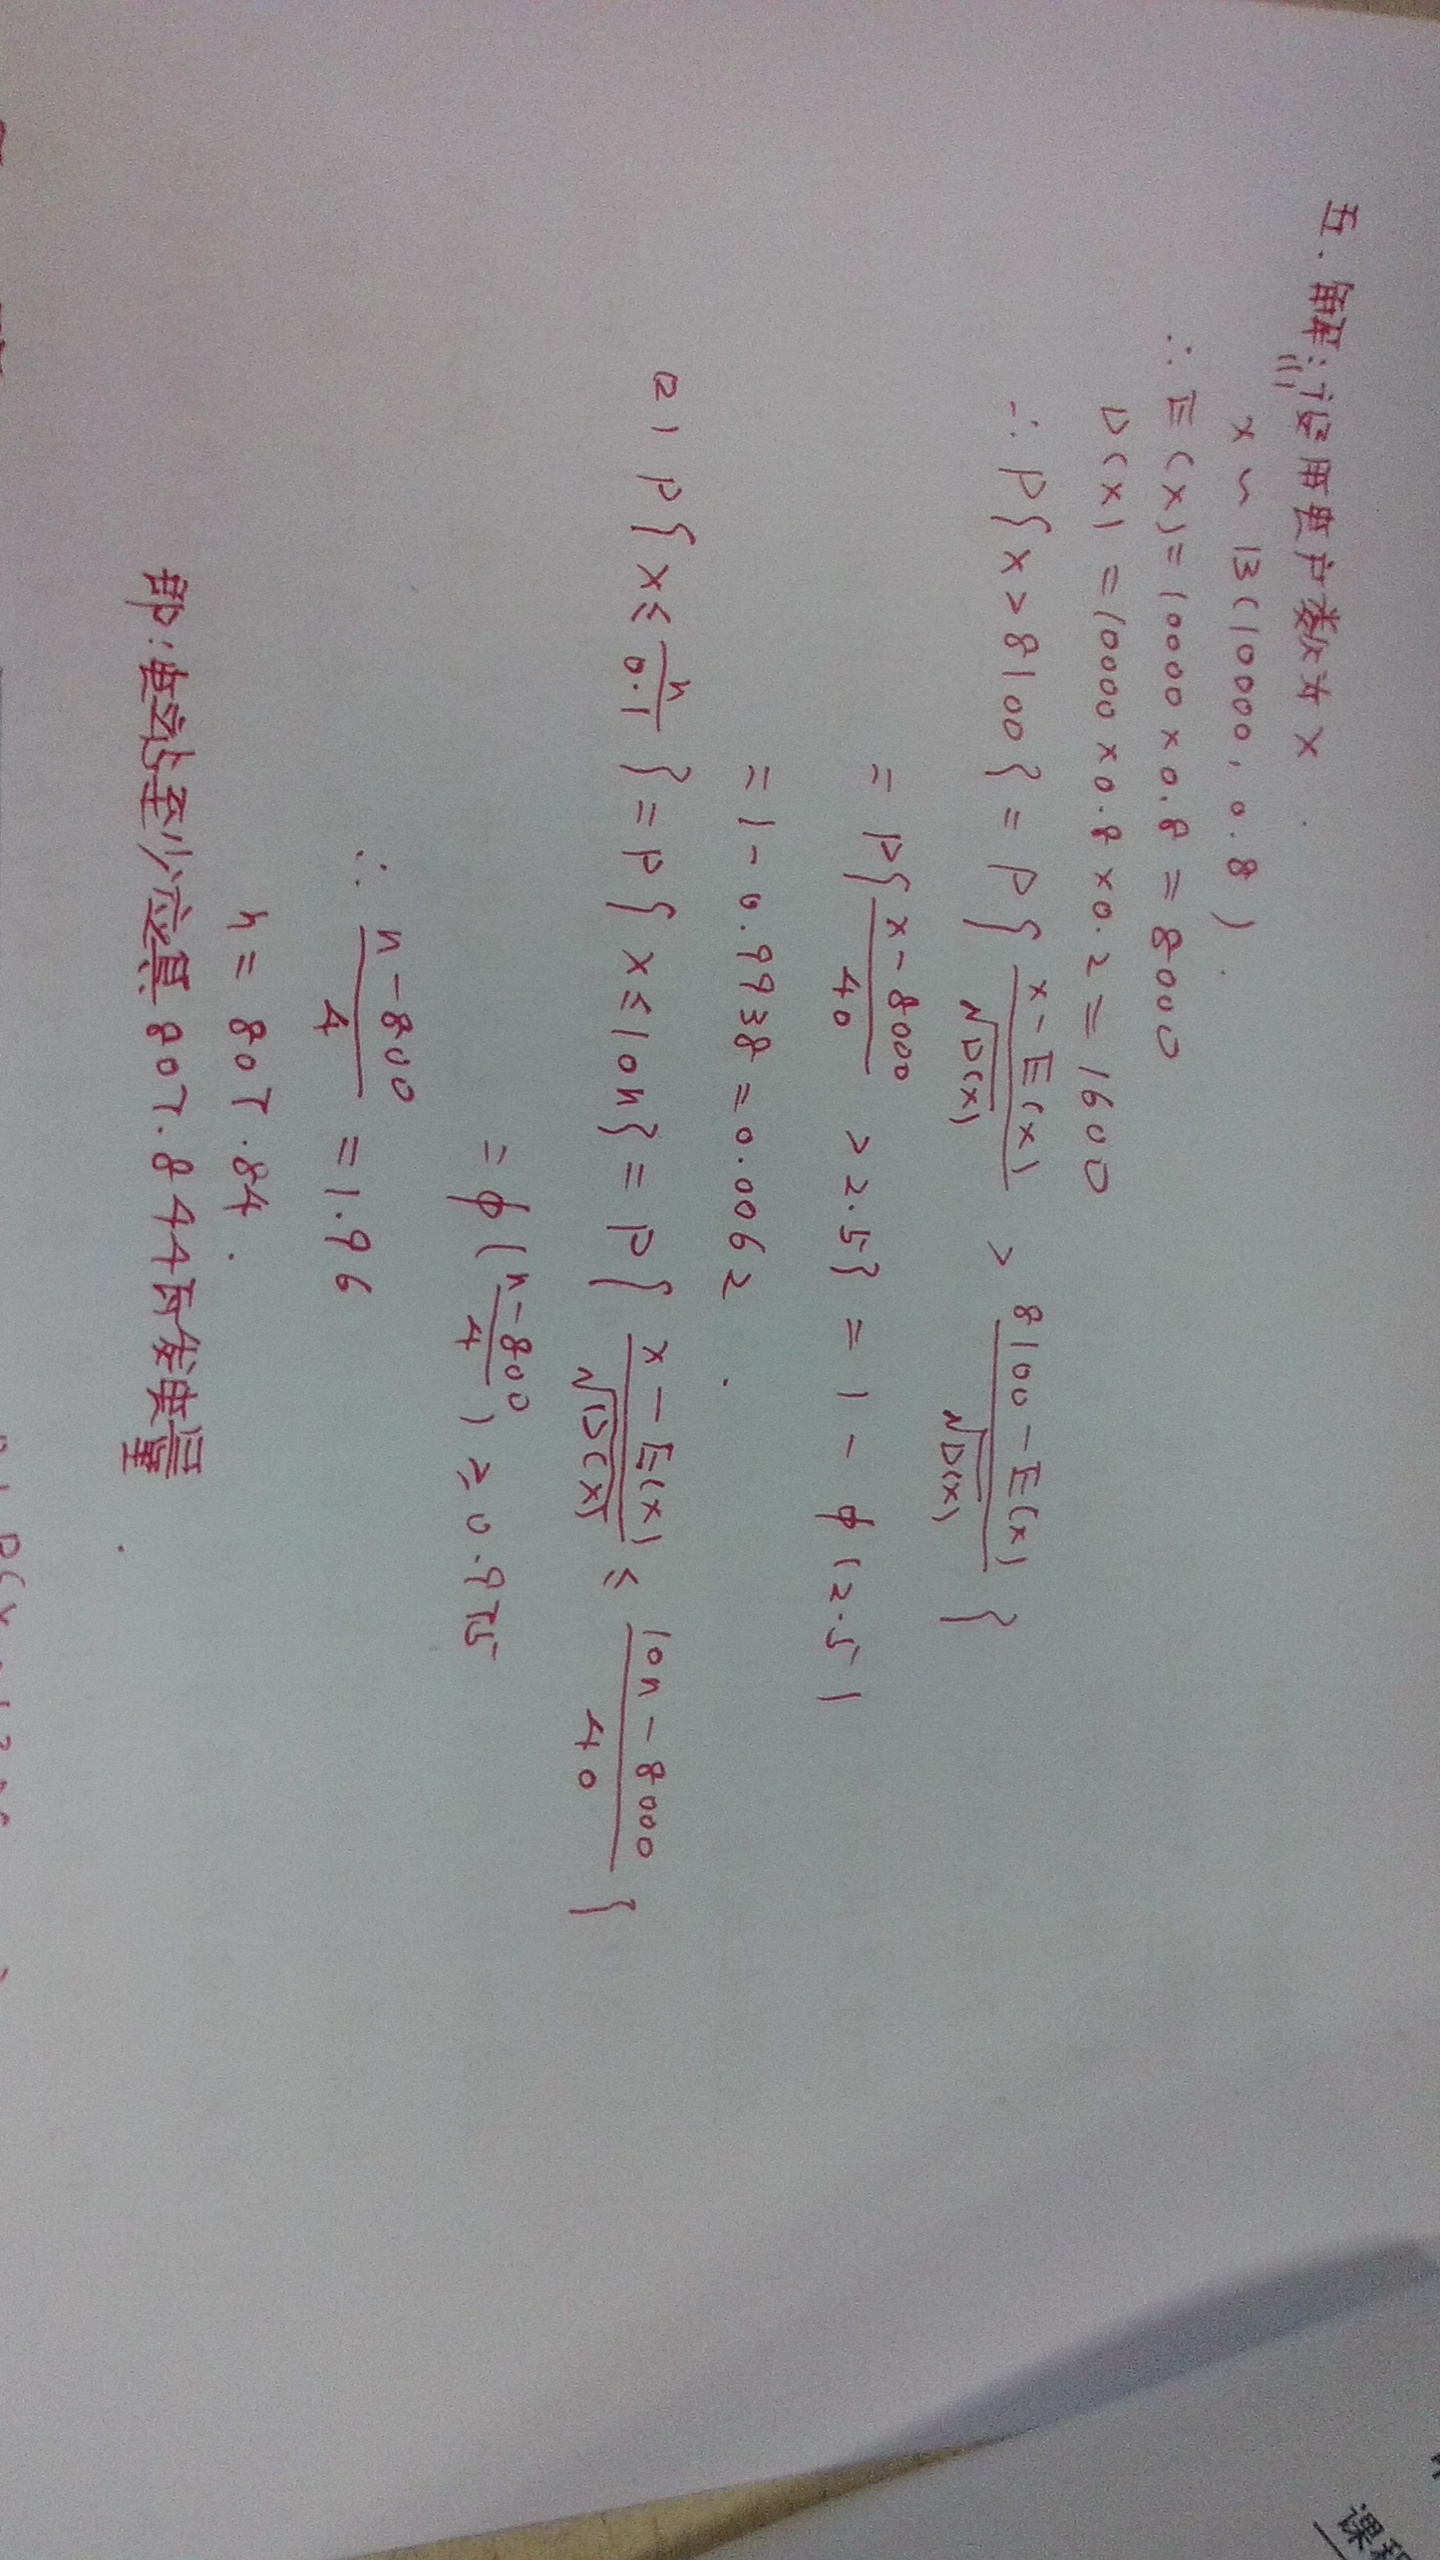 五.解:(1)设用电户数为X
X～B(10000,0.8).
∴E(X)=10000×0.8=8000
D(X)=10000×0.8×0.2=1600
∴P{X>8100}=P{\frac{X-E(X)}{\sqrt{D(X)}}>\frac{8100-E(X)}{\sqrt{D(X)}}}
=P{\frac{X-8000}{40}>2.5}=1-φ(2.5)
=1-0.9938=0.0062.
2)P{X≤\frac{n}{0.1}}=P{X≤10n}=P{\frac{X-E(X)}{\sqrt{D(X)}}≤\frac{10n-8000}{40}}
=φ(\frac{n-800}{4})≥0.975
∴\frac{n-800}{4}=1.96
n=807.84.
即:电站至少应具807.84千瓦发电量.
课程